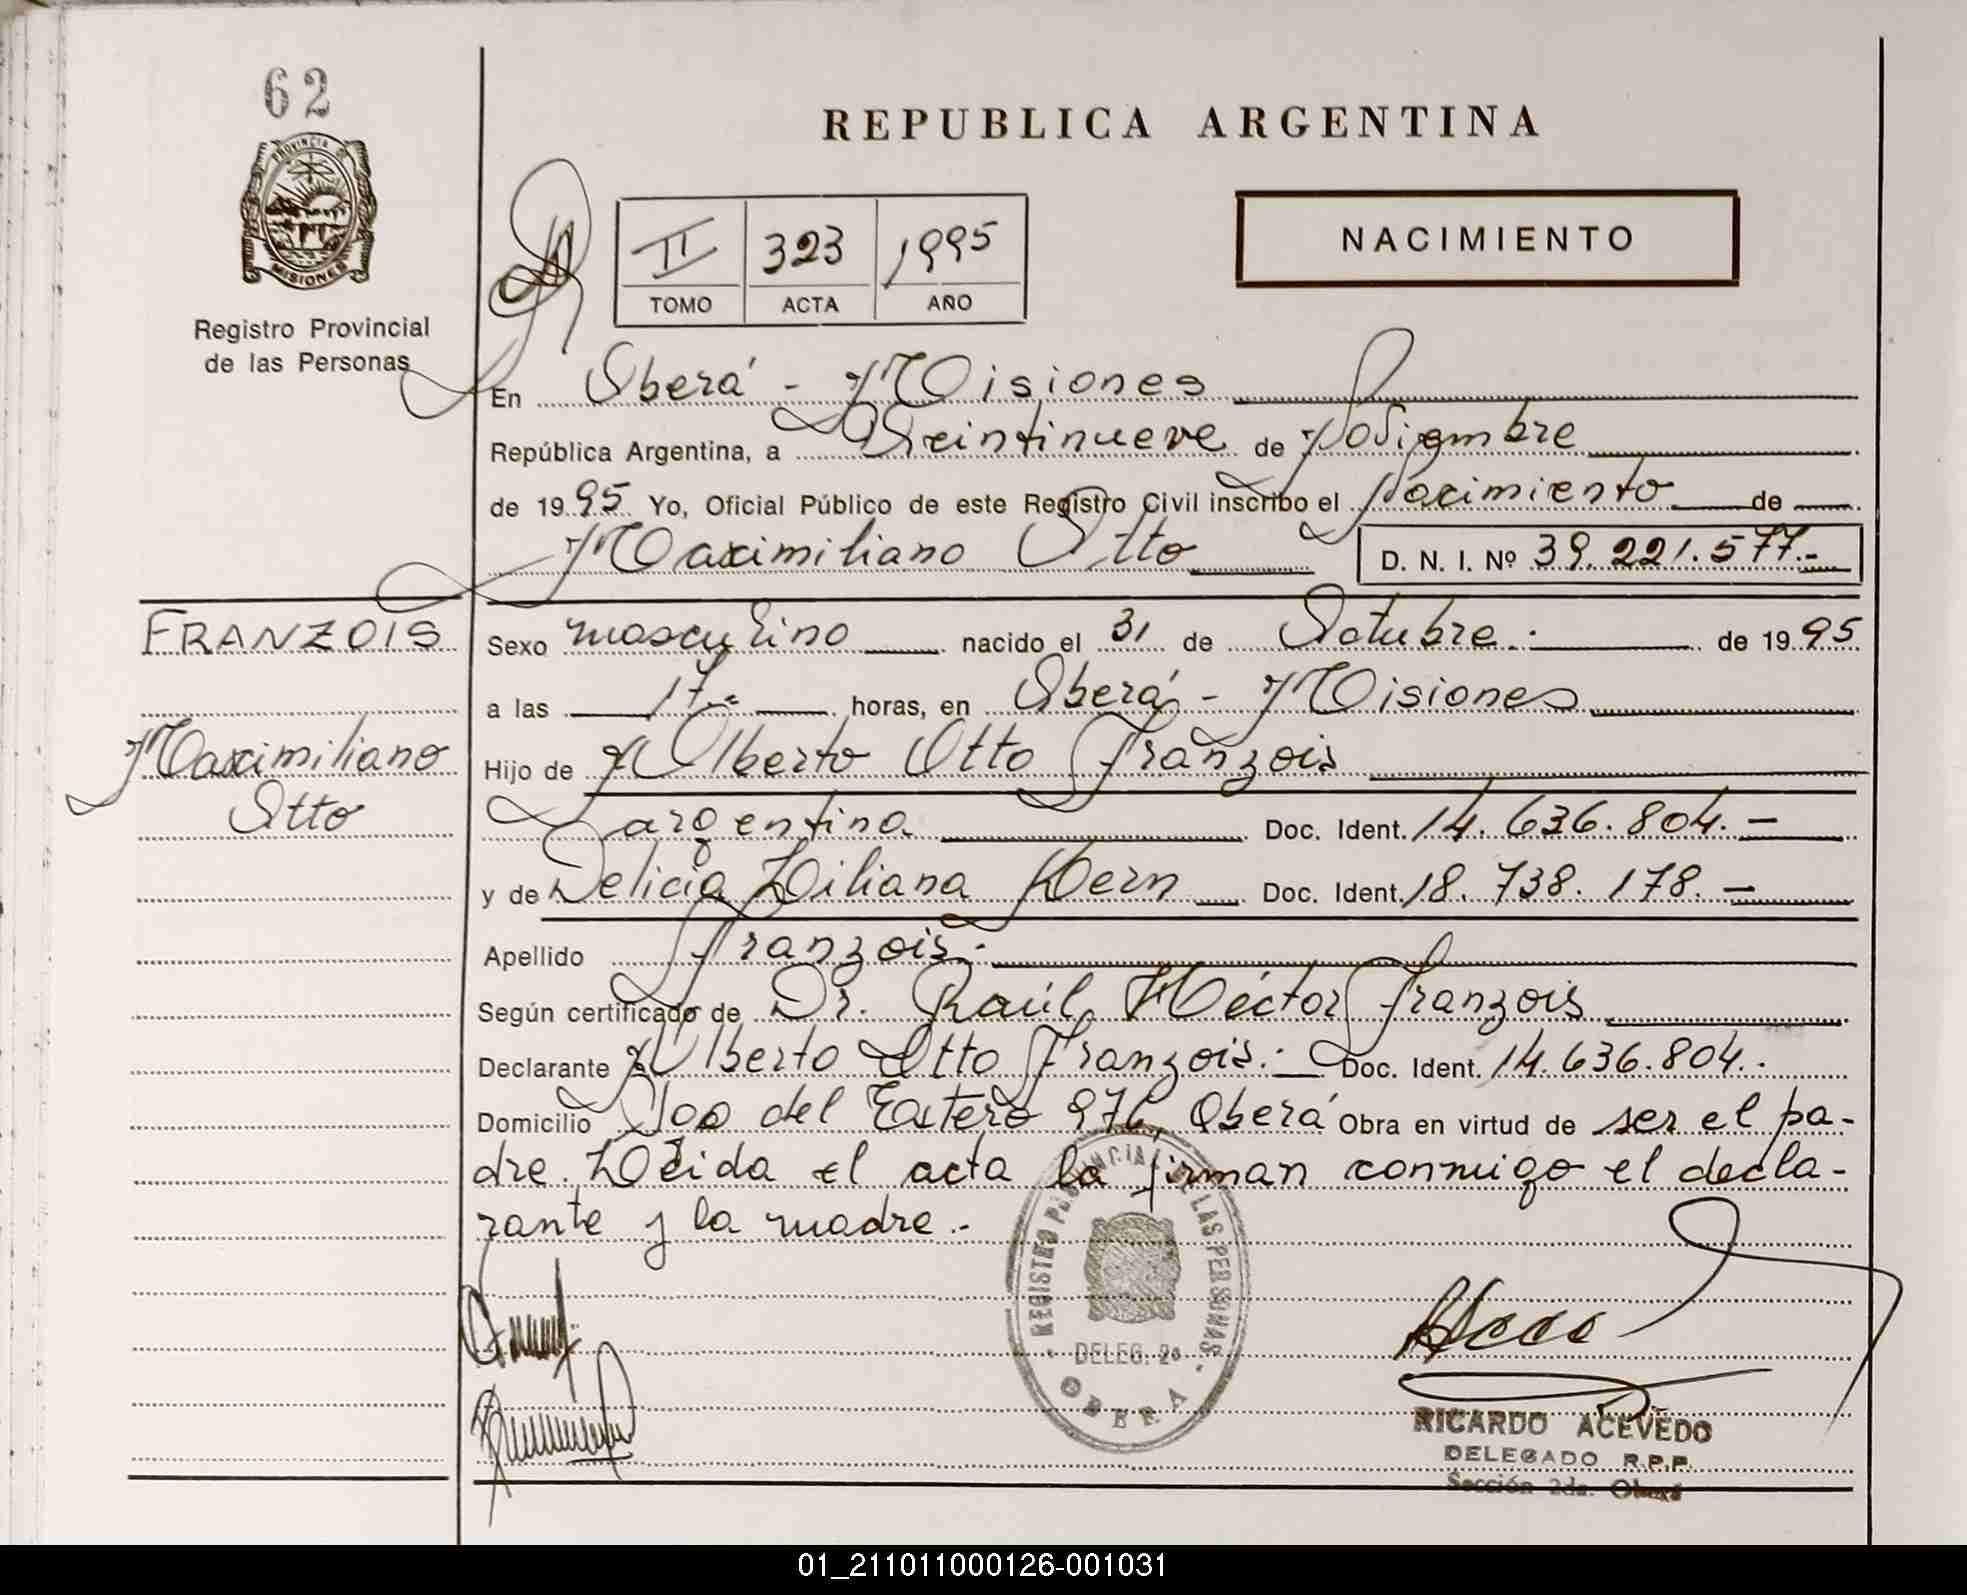 62
REPUBLICA ARGENTINA
PROVINCIA DE
MISIONES
Registro Provincial
de las Personas
II 323 1995
TOMO ACTA AÑO
NACIMIENTO
En Oberá - Misiones
República Argentina, a Veintinueve de Noviembre
de 1995 Yo, Oficial Público de este Registro Civil inscribo el Nacimiento de
Maximiliano Otto D. N. I. Nº 39.221.577.-
FRANZOIS
Maximiliano
Otto
Sexo masculino nacido el 31 de Octubre.- de 1995
a las 17.- horas, en Oberá - Misiones
Hijo de Alberto Otto Franzois
argentina Doc. Ident. 14.636.804.-
y de Delicia Liliana Kern Doc. Ident. 18.738.178.-
Apellido Franzois.-
Según certificado de Dr. Raúl Héctor Franzois
Declarante Alberto Otto Franzois.- Doc. Ident. 14.636.804.-
Domicilio Sgo del Estero 976, Oberá Obra en virtud de ser el pa-
dre. Leida el acta la firman conmigo el decla-
rante y la madre.-
REGISTRO PROVINCIAL DE LAS PERSONAS
DELEG. 2ª
OBERA
RICARDO ACEVEDO
DELEGADO R.P.P.
Sección 2da. Oberá
01_211011000126-001031